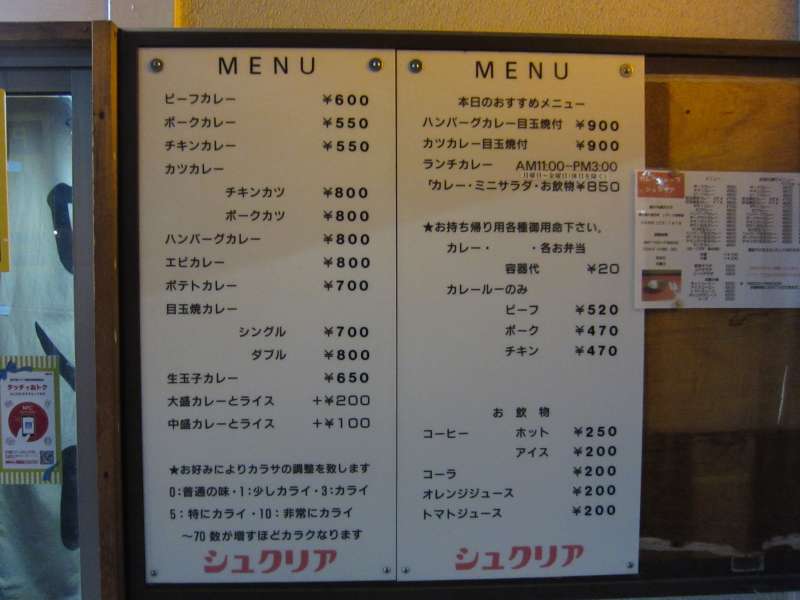 MENU
ビーフカレー ￥600
ポークカレー ￥550
チキンカレー ￥550
カツカレー
チキンカツ ￥800
ポークカツ ￥800
ハンバーグカレー ￥800
エビカレー ￥800
ポテトカレー ￥700
目玉焼カレー
シングル ￥700
ダブル ￥800
生玉子カレー ￥650
大盛カレーとライス +￥200
中盛カレーとライス +￥100
★お好みによりカラサの調整を致します
0：普通の味・1：少しカライ・3：カライ
5：特にカライ・10：非常にカライ
～70 数が増すほどカラクなります
シュクリア
MENU
本日のおすすめメニュー
ハンバーグカレー目玉焼付 ￥900
カツカレー目玉焼付 ￥900
ランチカレー AM11:00~PM3:00
「カレー・ミニサラダ・お飲物￥850
★お持ち帰り用各種御用命下さい。
カレー・ ・各お弁当
容器代 ￥20
カレールーのみ
ビーフ ￥520
ポーク ￥470
チキン ￥470
お飲物
コーヒー ホット ￥250
アイス ￥200
コーラ ￥200
オレンジジュース ￥200
トマトジュース ￥200
シュクリア
シュクリア
メニュー
タッチでおトク